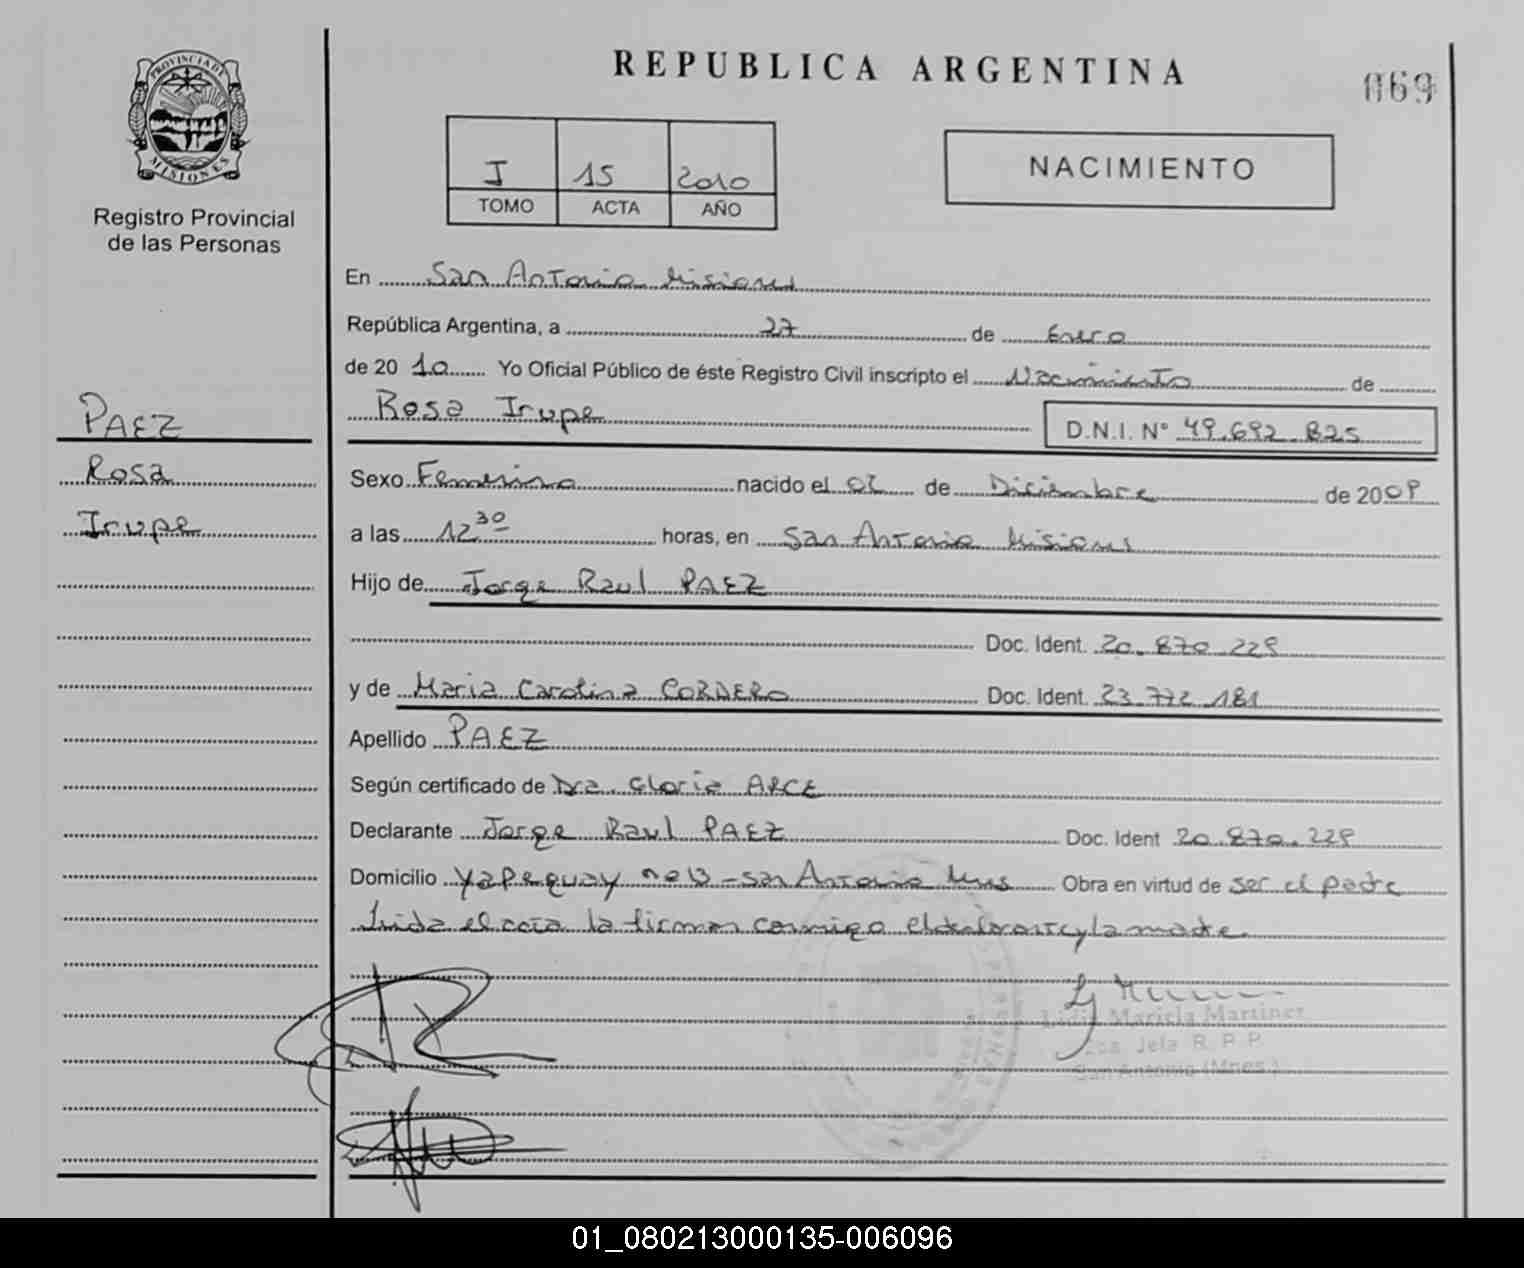 PROVINCIA DE
MISIONES
Registro Provincial
de las Personas
PAEZ
Rosa
Irupe
REPUBLICA ARGENTINA
069
I 15 2010
TOMO ACTA AÑO
NACIMIENTO
En San Antonio Misiones
República Argentina, a 27 de Enero
de 20 10 Yo Oficial Público de éste Registro Civil inscripto el Nacimiento de
Rosa Irupe D.N.I. N° 49.692.825
Sexo Femenino nacido el 02 de Diciembre de 2009
a las 12 30 horas, en San Antonio Misiones
Hijo de Jorge Raul PAEZ
Doc. Ident. 20.870.229
y de Maria Carolina CORDERO Doc. Ident. 23.772.181
Apellido PAEZ
Según certificado de Dra. Gloria ARCE
Declarante Jorge Raul PAEZ Doc. Ident 20.870.229
Domicilio Yapeguay - San Antonio Mnes Obra en virtud de ser el padre
Leida el acta la firman conmigo el declarante y la madre.
Lidia Mariela Martinez
Jefa R. P. P.
San Antonio (Mnes.)
01_080213000135-006096